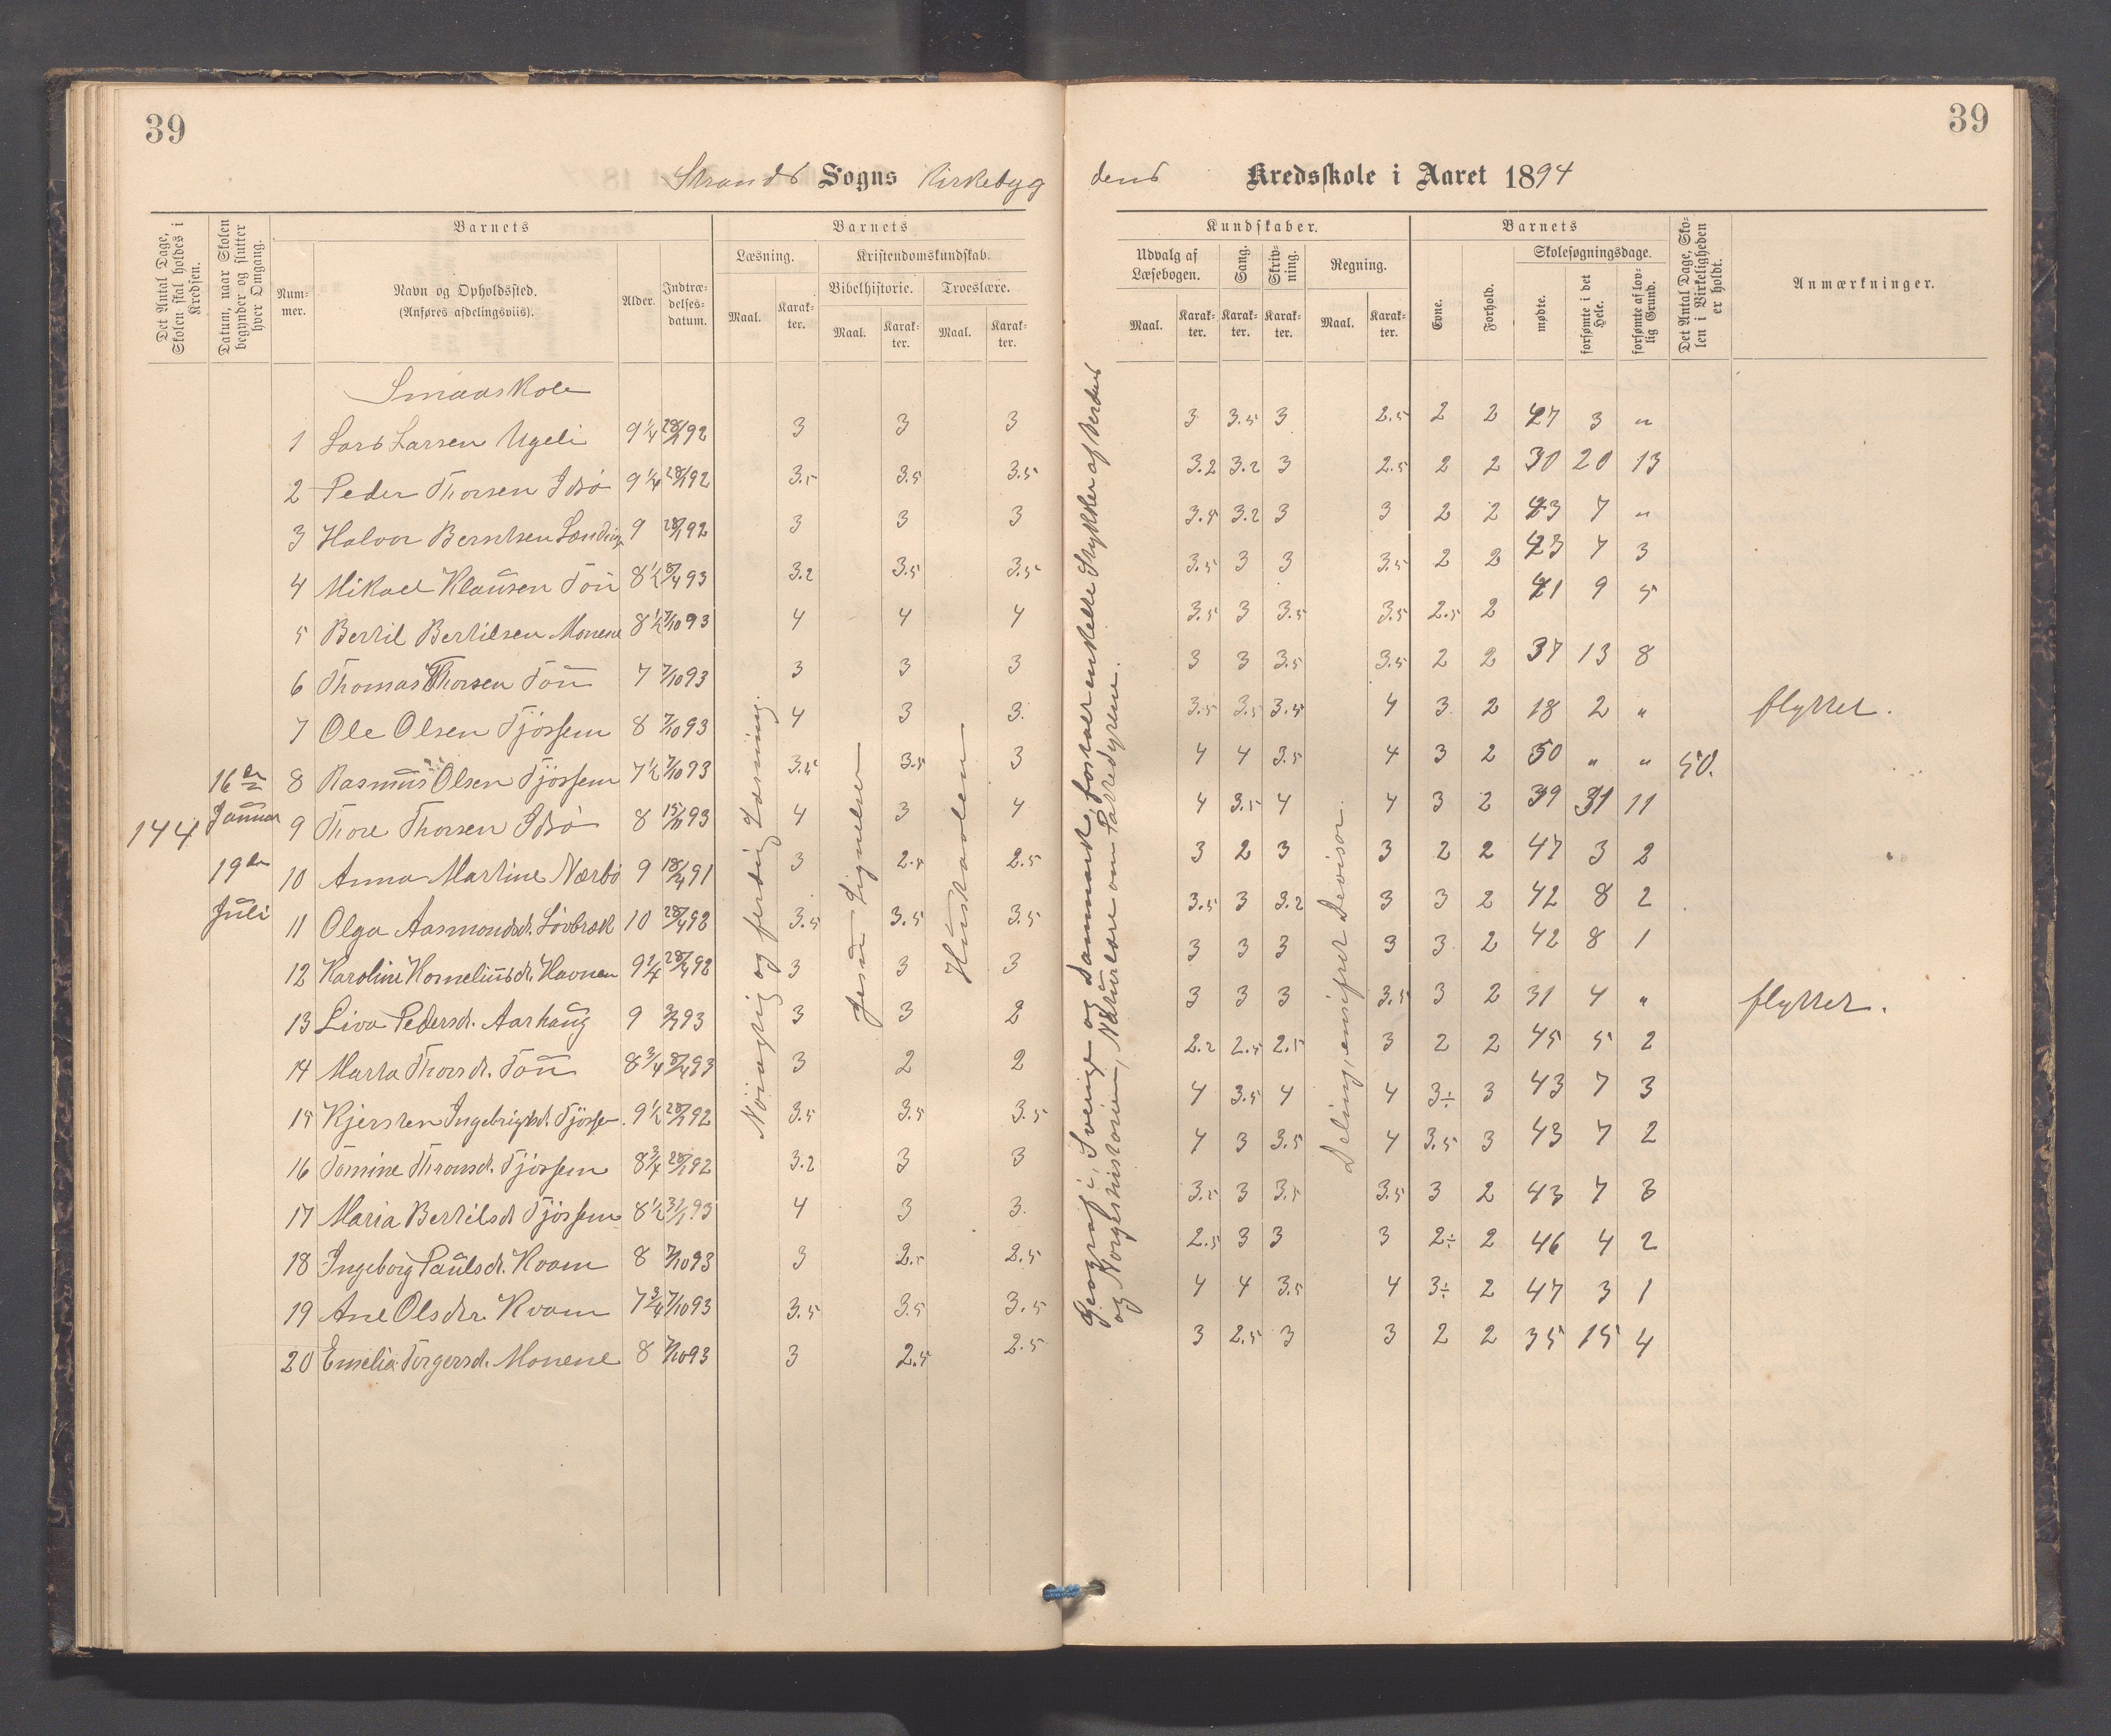 39
39
Strands Sogns Kirkebyg
dens Kredsskole i Aaret 1894
Det Antal Dage, Skolen skal holdes i Kredsen.
Datum, naar Skolen begynder og slutter hver Omgang.
Barnets
Num-mer.
Navn og Opholdssted. (Anføres afdelingsviis).
Alder.
Indtræ-delses-datum.
Barnets
Læsning.
Kristendomskundskab.
Bibelhistorie.
Troeslære.
Maal. Karak-ter. Maal. Karak-ter. Maal. Karak-ter.
Kundskaber.
Udvalg af Læsebogen.
Sang.
Skriv-ning.
Regning.
Maal. Karak-ter. Karak-ter. Karak-ter. Maal. Karak-ter.
Barnets
Evne.
Forhold.
Skolesøgningsdage.
mødte.
forsømte i det Hele.
forsømte af lov-lig Grund.
Det Antal Dage, Sko-len i Virkeligheden er holdt.
Anmærkninger.
Smaaskole
144
16de Januar
19de Juli
Nöiagtig og ferdig Læsning.
Jesu Lignelser
Hustavlen
Geografi: Sverige og Danmark, forstaar enkelte Stykker af Verdens
og Norgeshistorien, Naturlære om Pattedyrene.
Deling, ensifret Devisor.
1 Lars Larsen Ugeli 9 1/4 28/1 92 3 3 3 3 3.5 3 2.5 2 2 47 3 "
2 Peder Thorsen Idsö 9 1/4 28/1 92 3.5 3.5 3.5 3.2 3.2 3 2.5 2 2 30 20 13
3 Halvor Berntsen 9 28/1 92 3 3 3 3.5 3.2 3 3 2 2 43 7 "
4 Mikael Klausen Tou 8 1/2 93 3.2 3.5 3.5 3.5 3 3 3.5 2 2 43 7 3
5 Bertil Bertilsen Monene 8 1/2 7/10 93 4 4 4 3.5 3 3.5 3.5 2.5 2 41 9 5
6 Thomas Thorsen Tou 7 7/10 93 3 3 3 3 3 3.5 3.5 2 2 37 13 8
7 Ole Olsen Tjössem 8 7/10 93 4 3 3. 3.5 3.5 3.5 4 3 2 18 2 " flyttet.
8 Rasmus Olsen Tjössem 7 1/2 7/10 93 3.5 3.5 3 4 4 3.5 4 3 2 50 " " 50.
9 Thore Thorsen Idsö 8 93 4 3 4 4 3.5 4 4 3 2 39 31 11
10 Anna Martine Nærbö 9 18/4 91 3 2.5 2.5 3 2 3 3 2 2 47 3 2
11 Olga Aasmondsd. Lövbræk 10 28/4 92 3.5 3.5 3.5 3.5 3 3.2 3 3 2 42 8 2
12 Karoline Korneliusdt. Havnen 9 1/4 28/4 92 3 3 3 3 3 3 3 3 2 42 8 1
13 Liva Pedersdt. Aarhaug 9 93 3 3 2 3 3 3 3.5 3 2 31 4 " flyttet.
14 Marta Thorsdt. Tou 8 3/4 93 3 2 2 2.2 2.5 2.5 3 2 2 45 5 2
15 Kjersten Ingebrigtsdt. Tjösse. 9 1/2 28/1 92 3.5 3.5 3.5 4 3.5 4 4 3÷ 3 43 7 3
16 Tomine Thronsdt. Tjössem 8 3/4 28/1 92 3.2 3 3 4 3 3.5 4 3.5 3 43 7 2
17 Maria Bertilsdt Tjössem 8 1/2 31/1 93 4 3 3. 3.5 3 3.5 3.5 3 2 43 7 3
18 Ingeborg Paulsdt. Kvam 8 7/10 93 3 2.5 2.5 2.5 3 3 3 2÷ 2 46 4 2
19 Ane Olsdtr. Kvam 7 3/4 7/10 93 3.5 3.5 3.5 4 4 3.5 4 3÷ 2 47 3 1
20 Emelia Torgersdt. Monene 8 7/10 93 3 2.5 2.5 3 2.5 3 3 2 2 35 15 4